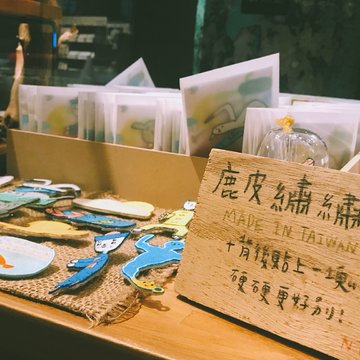 鹿皮繡繡
MADE IN TAIWAN
背後點上一塊
硬硬更好別!
N